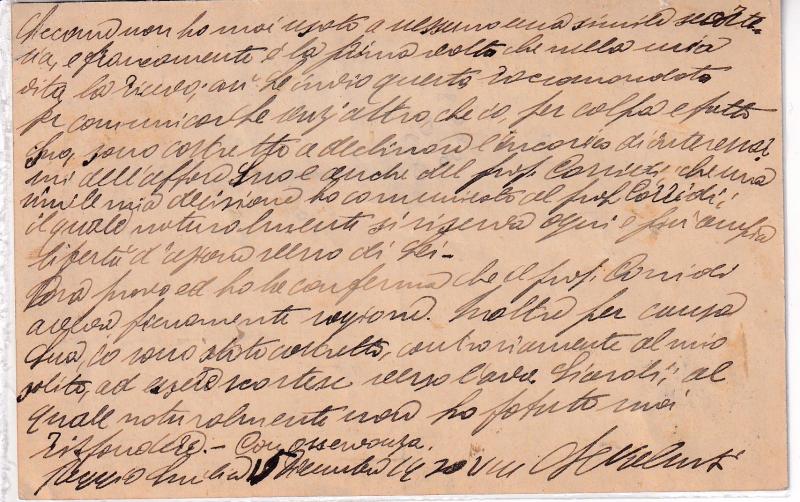 Siccome non ho mai usato a nessuno una simile scorte-
sia, e francamente è la prima volta che nella mia
vita la ricevo, così Le invio questa raccomandata
per comunicarLe senz'altro che io, per colpa e fatto
Suo, sono costretto a declinare l'incarico di interessar
mi dell'affare Suo e anche del prof. Corridi, che una
simile mia decisione ho comunicato al prof. Corridi,
il quale naturalmente si riserva ogni e più ampia
libertà d'azione verso di Lei.-
Ora provo ed ho la conferma che il prof. Corridi
aveva pienamente ragione. Inoltre per causa
Sua, io sono stato costretto, contrariamente al mio
solito, ad essere scortese verso l'avv. al
quale naturalmente non ho potuto mai
rispondere.- Con osservanza.
Reggio Emilia 15 Dicembre VIII